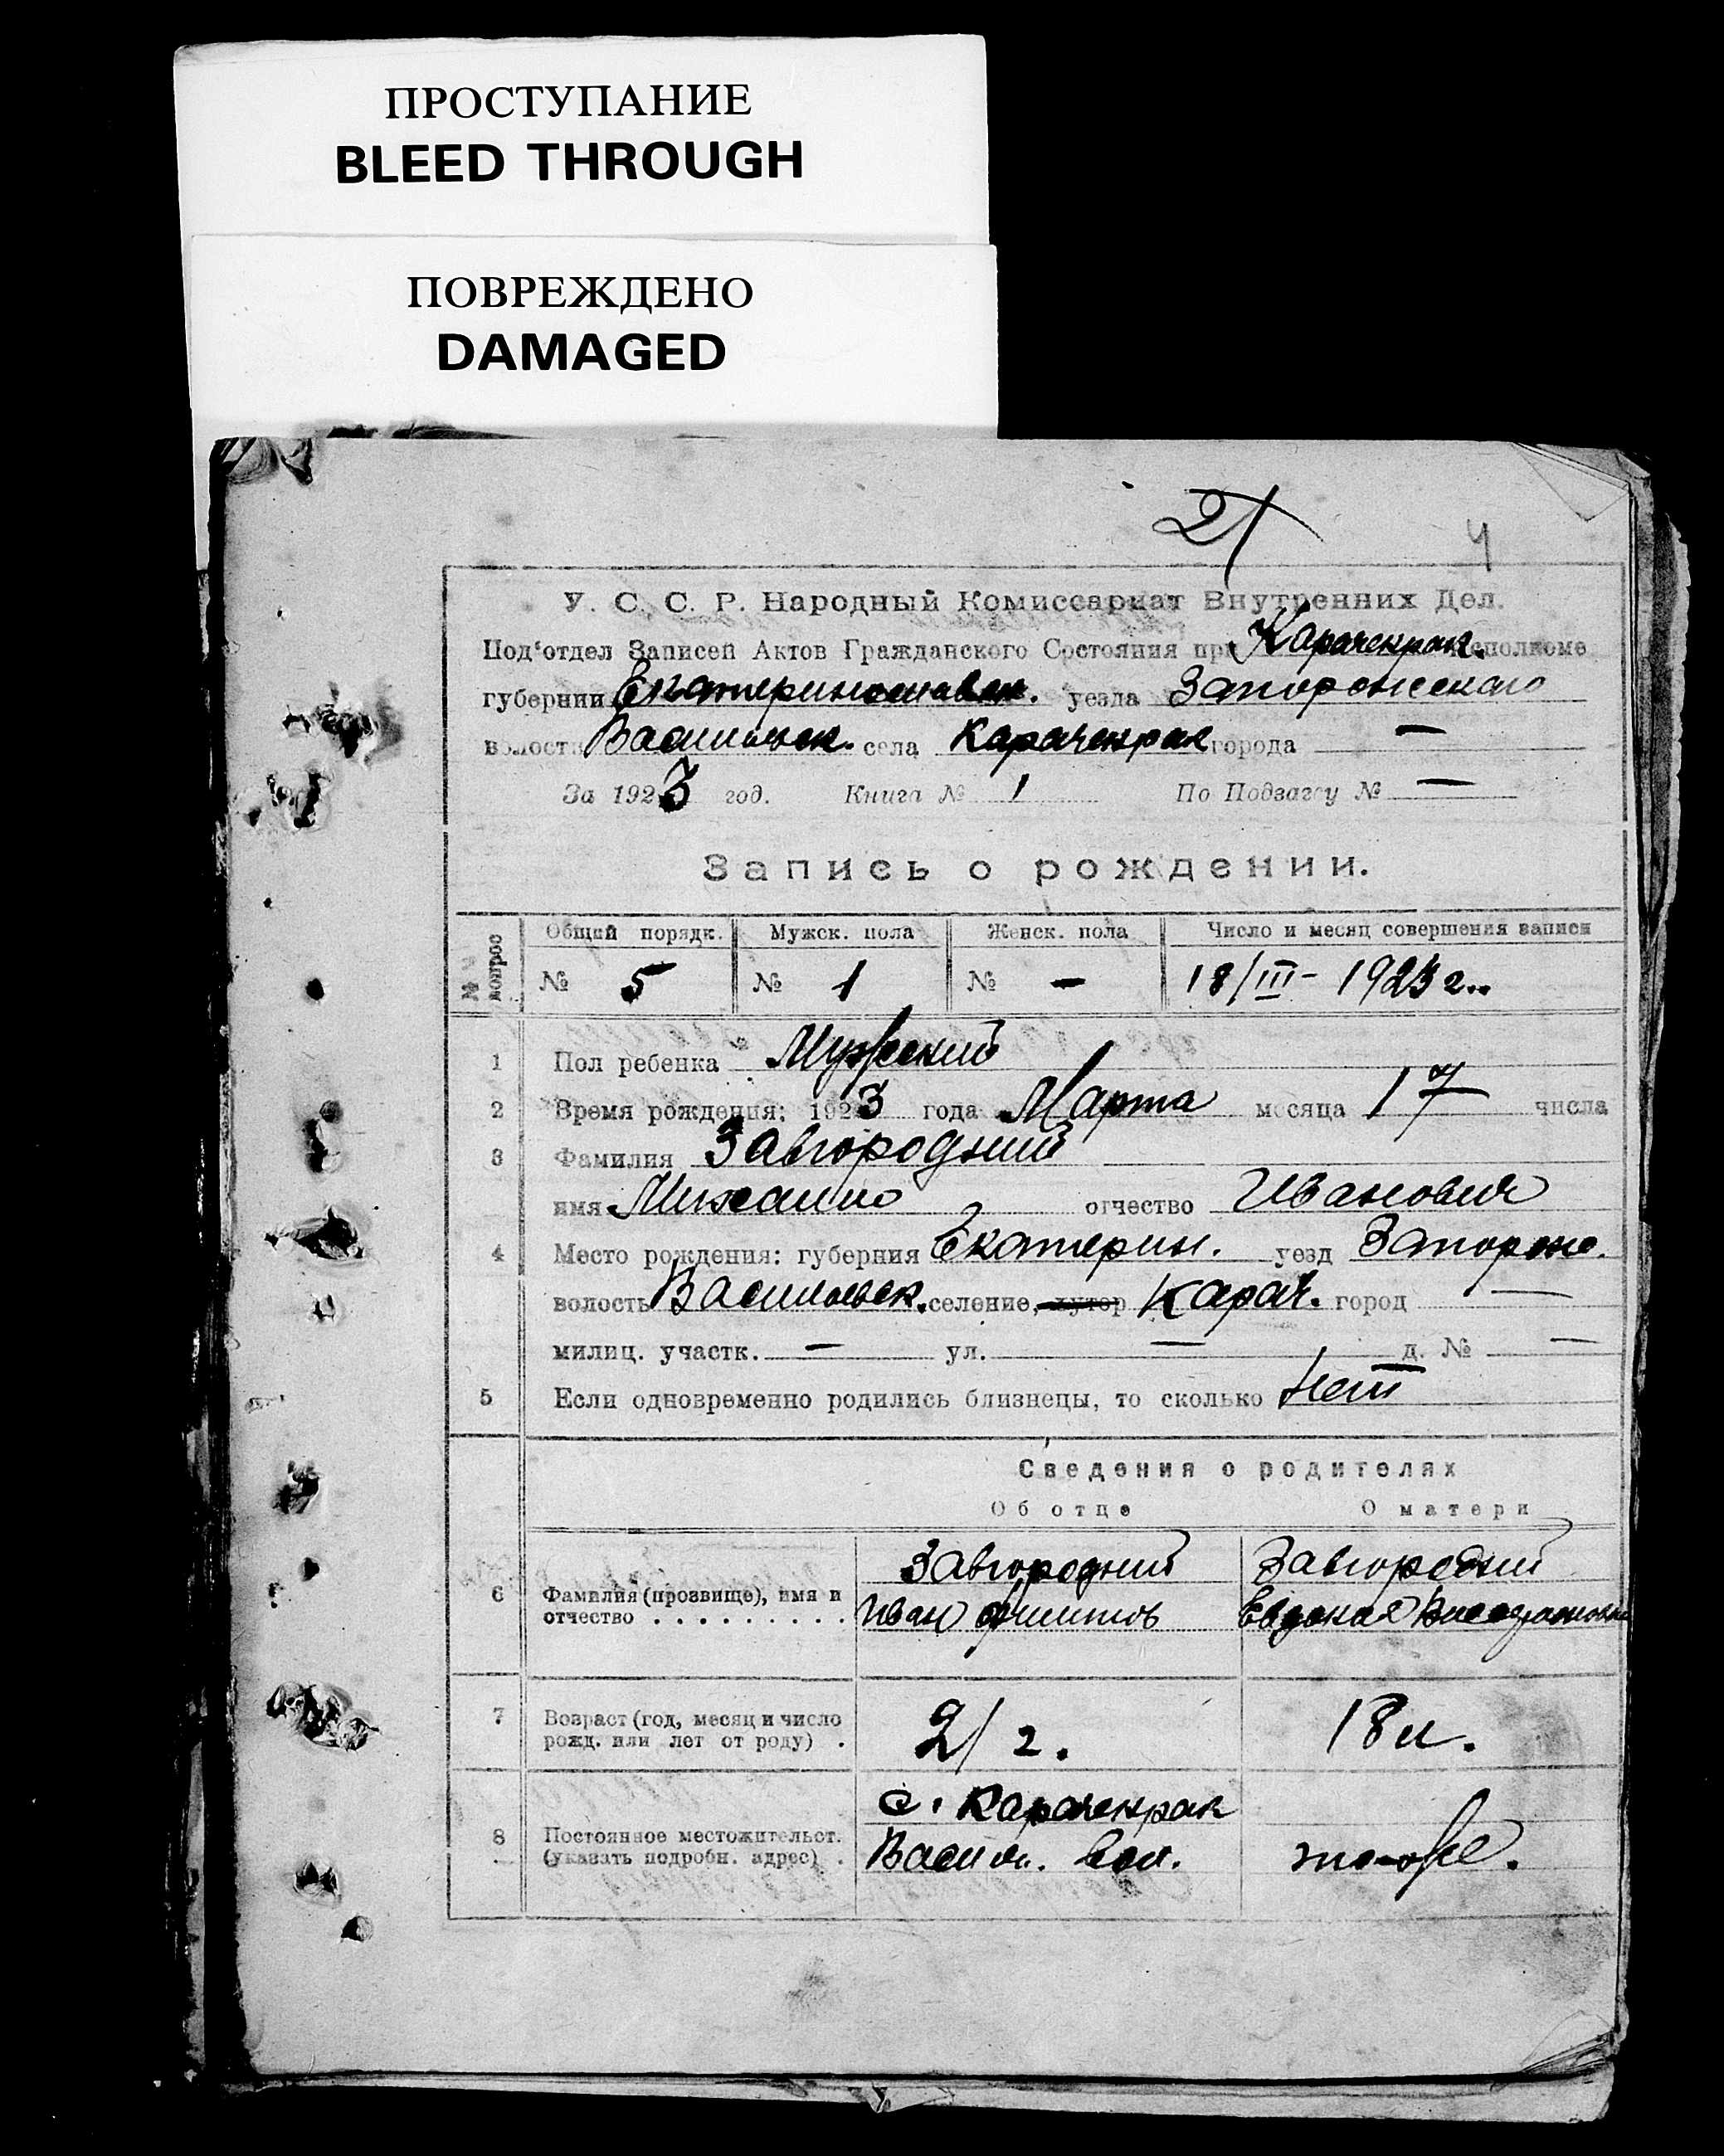 ПРОСТУПАНИЕ
BLEED THROUGH
ПОВРЕЖДЕНО
DAMAGED
21
4
У. С. С. Р. Народный Комиссариат Внутренних Дел.
Под'отдел Записей Актов Гражданского Состояния при Карачекрак. исполкоме
губернии Екатеринославск. уезда Запорожскаго
волости Васильевск. села Карачекрак города —
За 1923 год. Книга № 1 По Подзагсу № —
Запись о рождении.
№ вопрос
Общий порядк. Мужск. пола Женск. пола Число и месяц совершения записи
№ 5 № 1 № — 18/III - 1923 г.
1 Пол ребенка Мужеский
2 Время рождения: 1923 года Марта месяца 17 числа
3 Фамилия Завгородний
имя Михаил отчество Иванович
4 Место рождения: губерния Екатерин. уезд Запорож.
волость Васильевск. селение, хутор Карач. город —
милиц. участк. — ул. — д. № —
5 Если одновременно родились близнецы, то сколько Нет
Сведения о родителях
Об отце О матери
Завгородний Завгородний
6 Фамилия (прозвище), имя и
отчество . . . . . . . . . Иван Филипов Евдокия
7 Возраст (год, месяц и число
рожд. или лет от роду) . 21 г. 18 л.
с. Карачекрак
8 Постоянное местожительст.
(указать подробн. адрес) . Васил. вол. то-же.